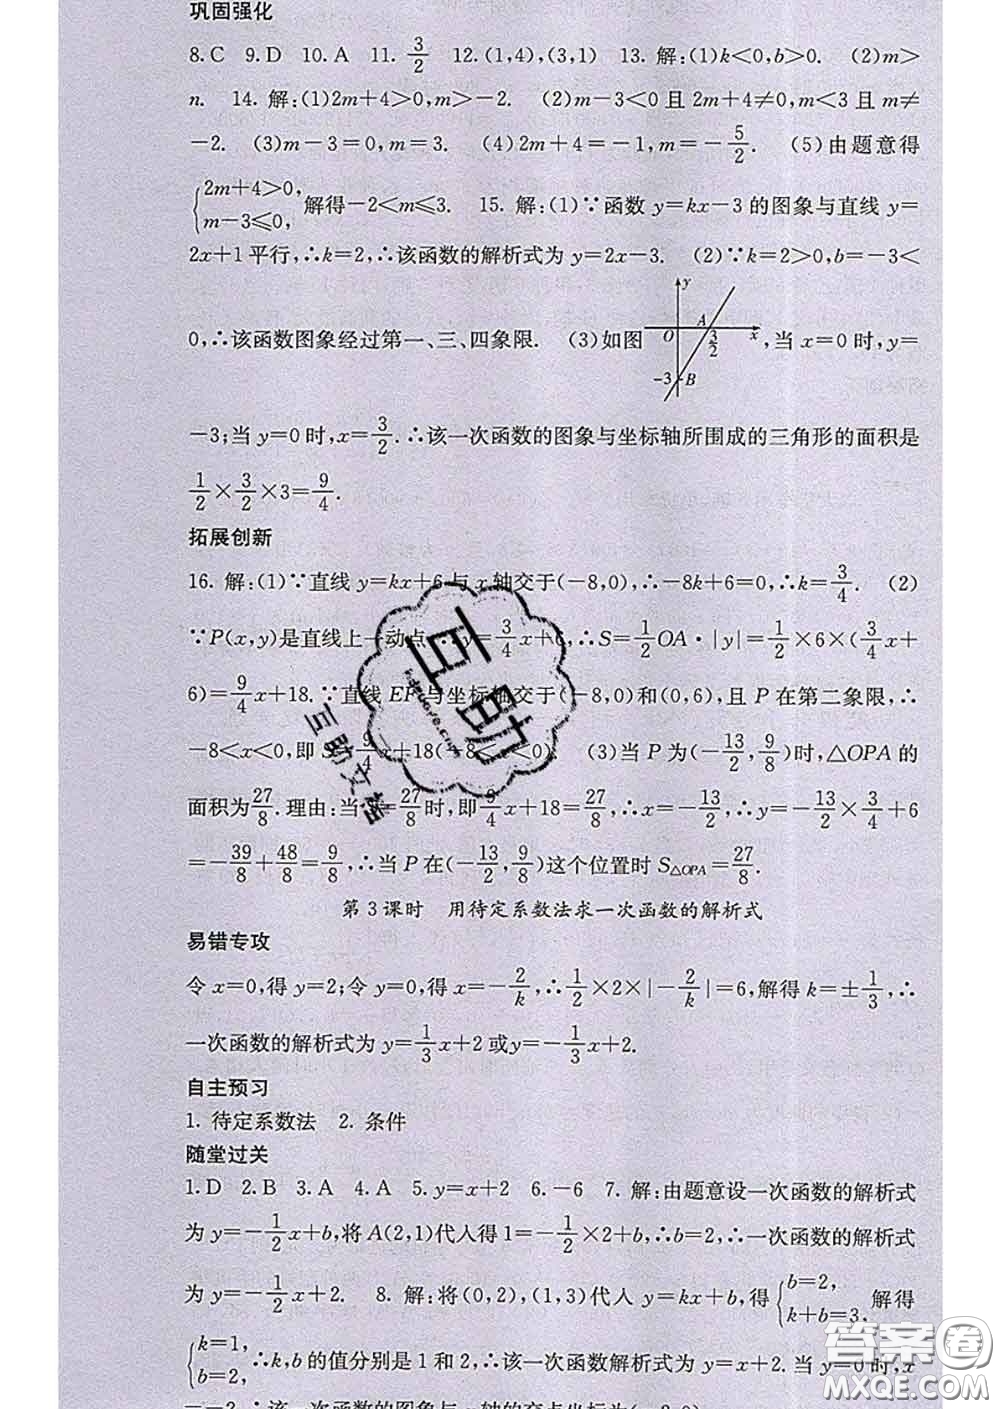 巩固强化
8. C 9. D 10. A 11. 3/2 12. (1,4),(3,1) 13. 解:(1)k<0,b>0. (2)m>
n. 14. 解:(1)2m+4>0,m>-2. (2)m-3<0 且 2m+4≠0,m<3 且 m≠
-2. (3)m-3=0,m=3. (4)2m+4=-1,m=-5/2. (5)由题意得
{2m+4>0, m-3≤0, 解得-2<m≤3. 15. 解:(1)∵函数 y=kx-3 的图象与直线 y=
2x+1 平行,∴k=2,∴该函数的解析式为 y=2x-3. (2)∵k=2>0,b=-3<
0,∴该函数图象经过第一、三、四象限. (3)如图 y A O 3/2 x -3 B ,当 x=0 时,y=
-3;当 y=0 时,x=3/2.∴该一次函数的图象与坐标轴所围成的三角形的面积是
1/2×3/2×3=9/4.
拓展创新
16. 解:(1)∵直线 y=kx+6 与 x 轴交于(-8,0),∴-8k+6=0,∴k=3/4. (2)
∵P(x,y)是直线上一动点,∴y=3/4x+6,∴S=1/2OA·|y|=1/2×6×(3/4x+
6)=9/4x+18.∵直线 EF 与坐标轴交于(-8,0)和(0,6),且 P 在第二象限,∴
-8<x<0,即 S=9/4x+18(-8<x<0). (3)当 P 为(-13/2,9/8)时,△OPA 的
面积为27/8.理由:当 S=27/8时,即9/4x+18=27/8,∴x=-13/2,∴y=-13/2×3/4+6
=-39/8+48/8=9/8,∴当 P 在(-13/2,9/8)这个位置时 S△OPA=27/8.
第 3 课时 用待定系数法求一次函数的解析式
易错专攻
令 x=0,得 y=2;令 y=0,得 x=-2/k,∴1/2×2×|-2/k|=6,解得 k=±1/3,∴
一次函数的解析式为 y=1/3x+2 或y=-1/3x+2.
自主预习
1. 待定系数法 2. 条件
随堂过关
1. D 2. B 3. A 4. A 5. y=x+2 6. -6 7. 解:由题意设一次函数的解析式
为 y=-1/2x+b,将 A(2,1)代入得 1=-1/2×2+b,∴b=2,∴一次函数的解析式
为 y=-1/2x+2. 8. 解:将(0,2),(1,3)代入 y=kx+b,得{b=2, k+b=3, 解得
{k=1, b=2, ∴k,b 的值分别是 1 和 2,∴该一次函数解析式为 y=x+2. 当 y=0 时,x
=-2,∴该一次函数的图象与 x 轴的交点坐标为(-2,0).
互助
互助文档
答案圈
MXQE.COM